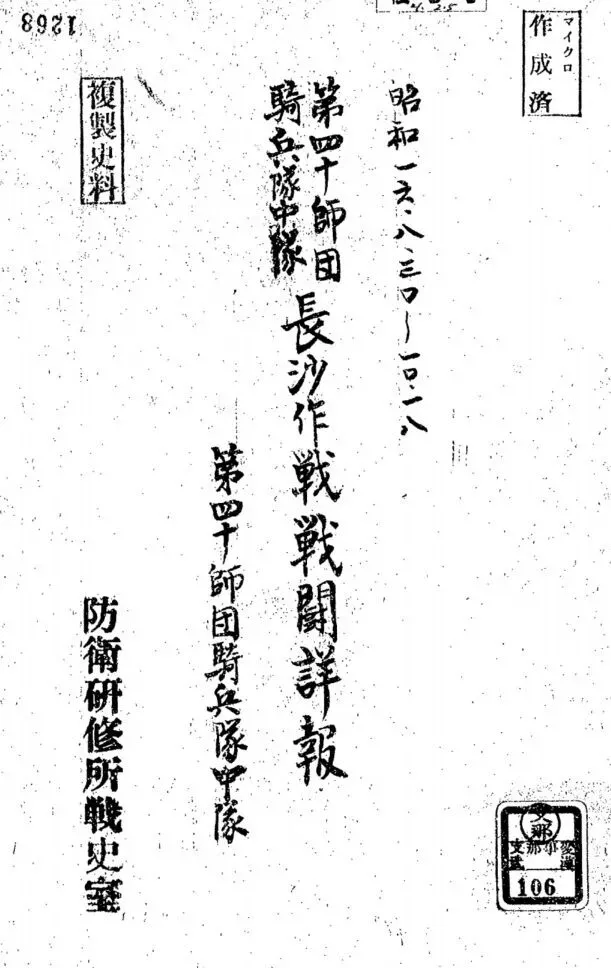 マイクロ
作成済
昭和一六・八・三〇〜一〇・一八
第四十師団
騎兵隊中隊
長沙作戦戦闘詳報
第四十師団騎兵隊中隊
複製史料
防衛研修所戦史室
1268
支那
106